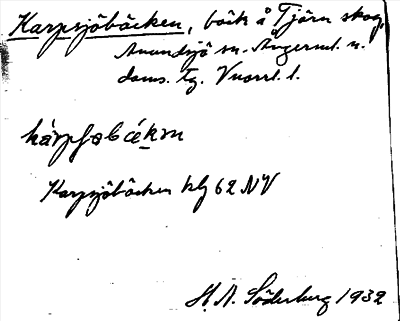 Karpsjöbäcken, bäck å Tjärn skog,
Anundsjö sn. Ångerml. n.
doms. tg. Vnorrl. l.
Karpsjöbäcken klg 62 NV
H. A. Söderberg 1932